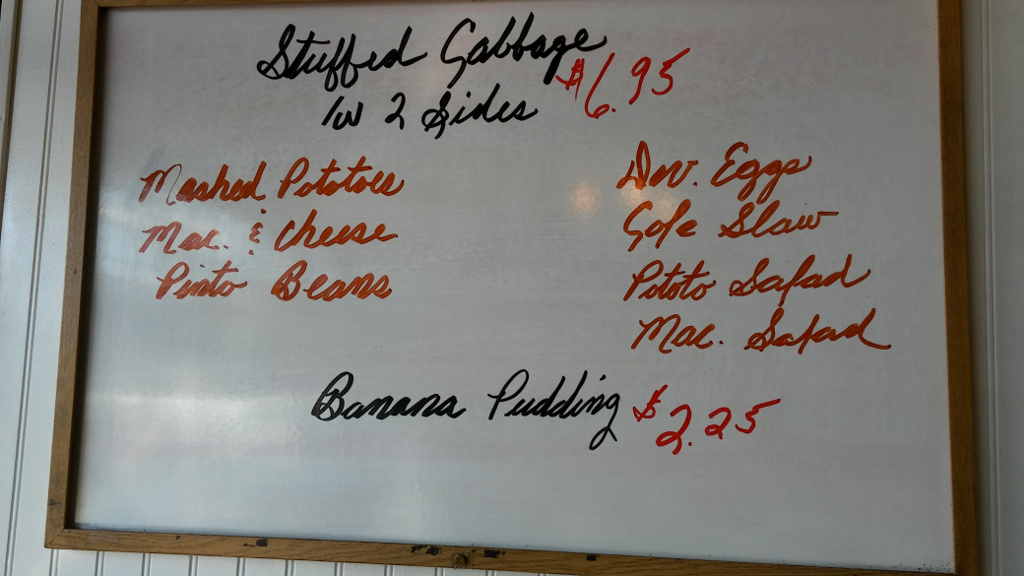 Stuffed Cabbage $6.95
w 2 Sides
Mashed Pototoes
Mac. & Cheese
Pinto Beans
Dev. Eggs
Cole Slaw
Pototo Salad
Mac. Salad
Banana Pudding $2.25